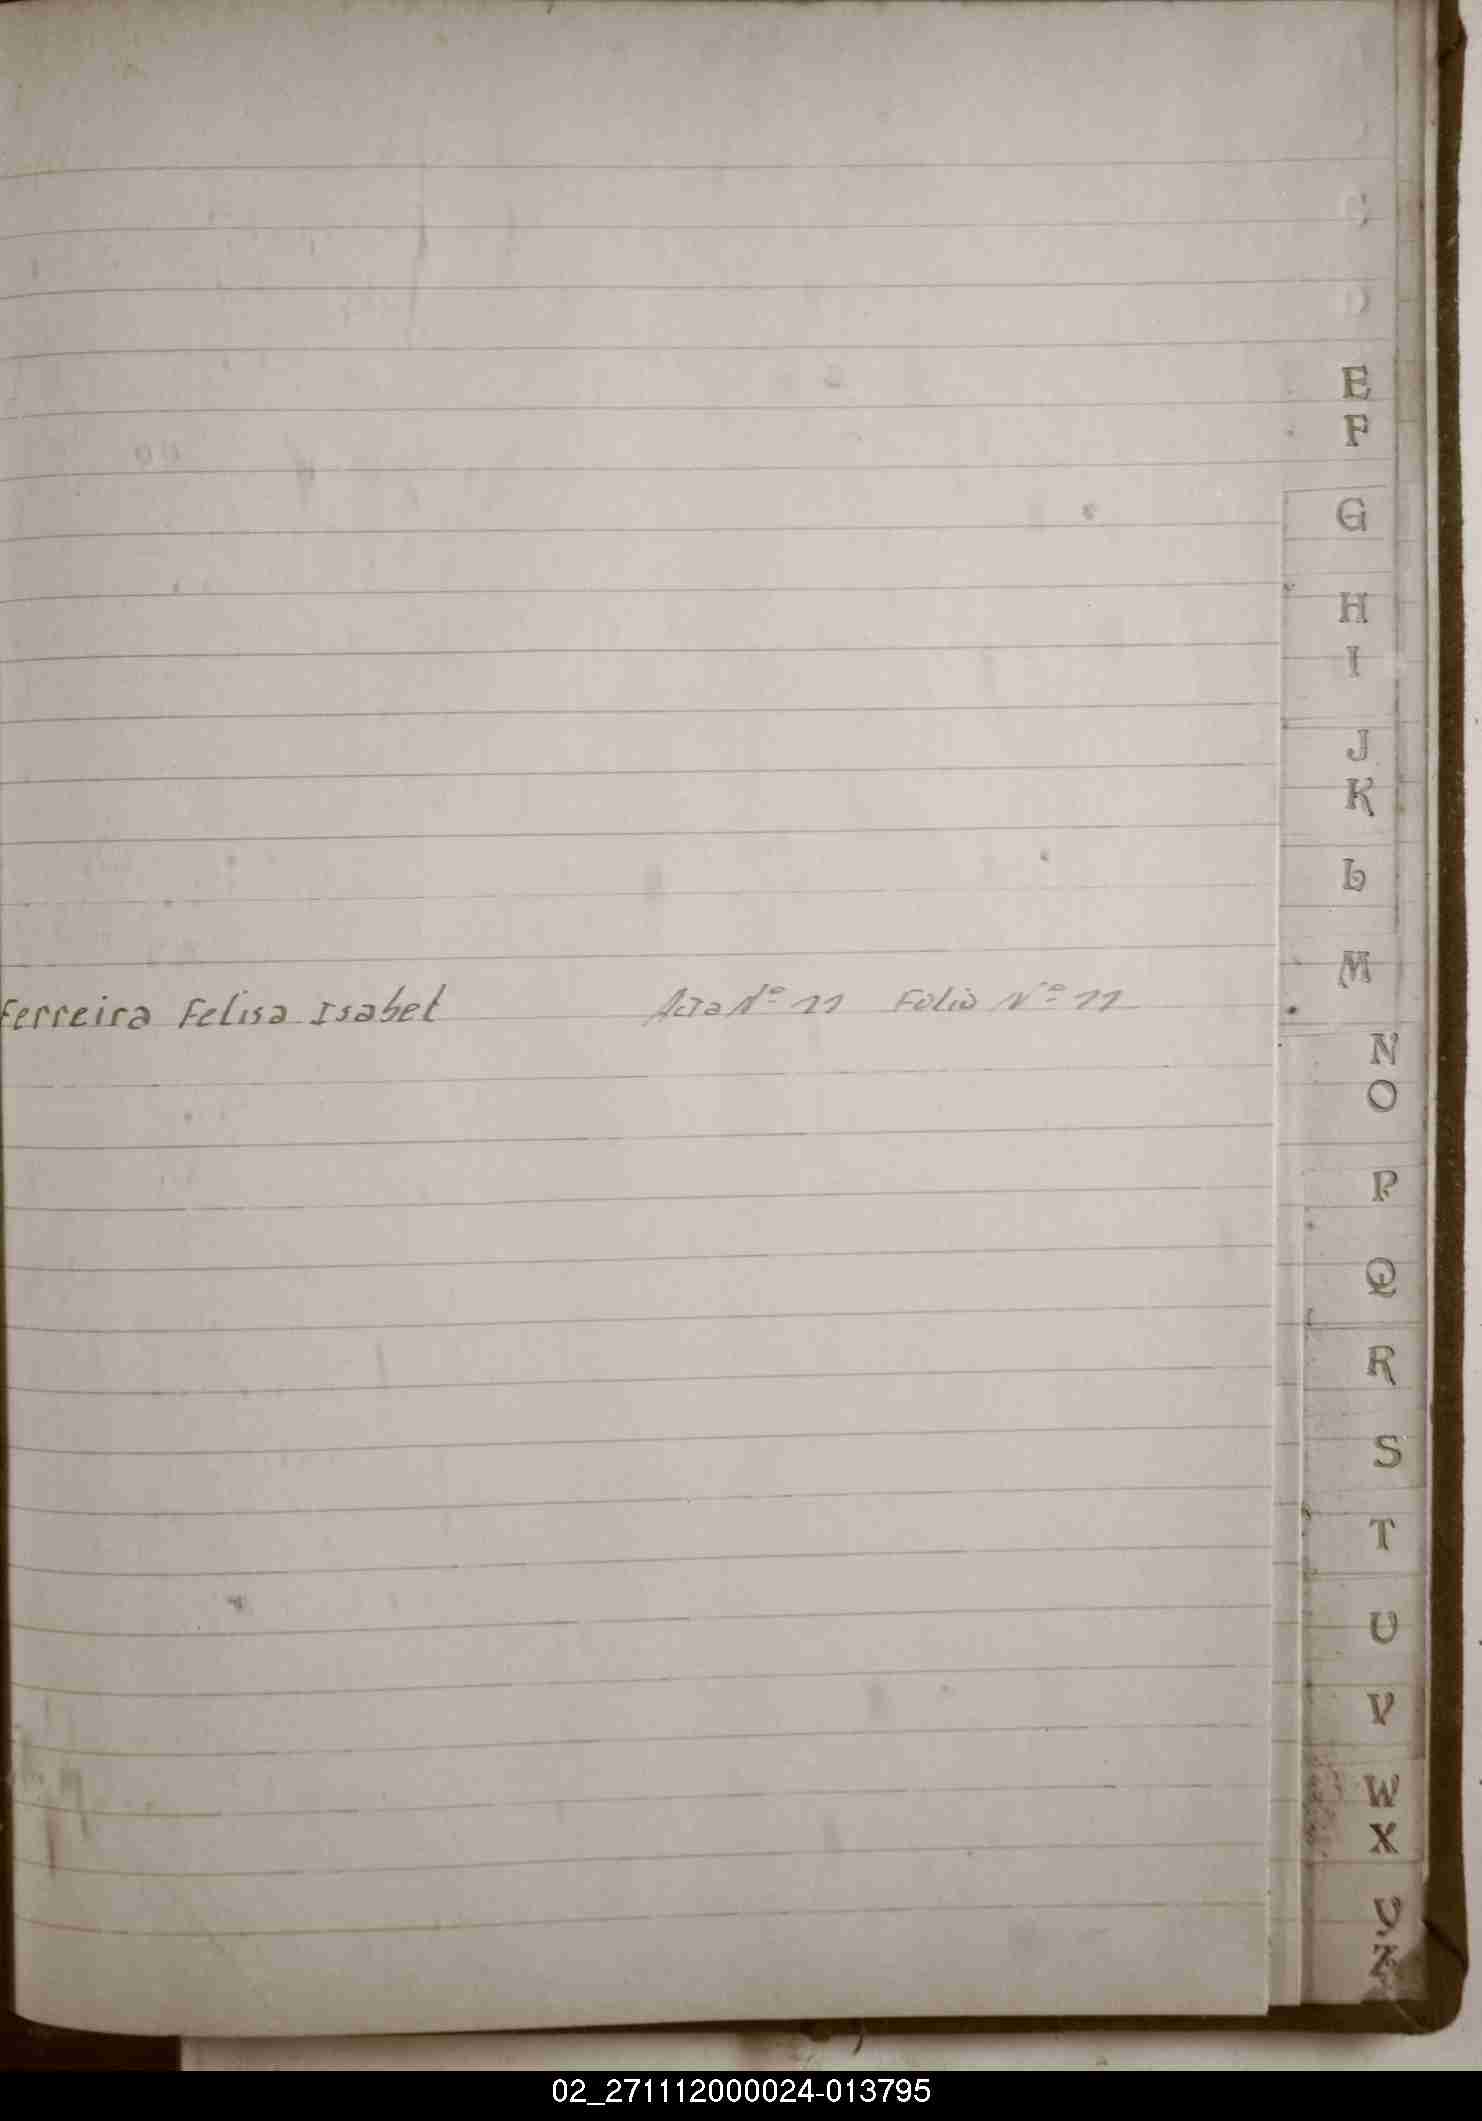 E
F
G
H
I
J
K
L
M
Ferreira Felisa Isabel Acta Nº 11 Folio Nº 11
N
O
P
Q
R
S
T
U
V
W
X
Y
Z
02_271112000024-013795